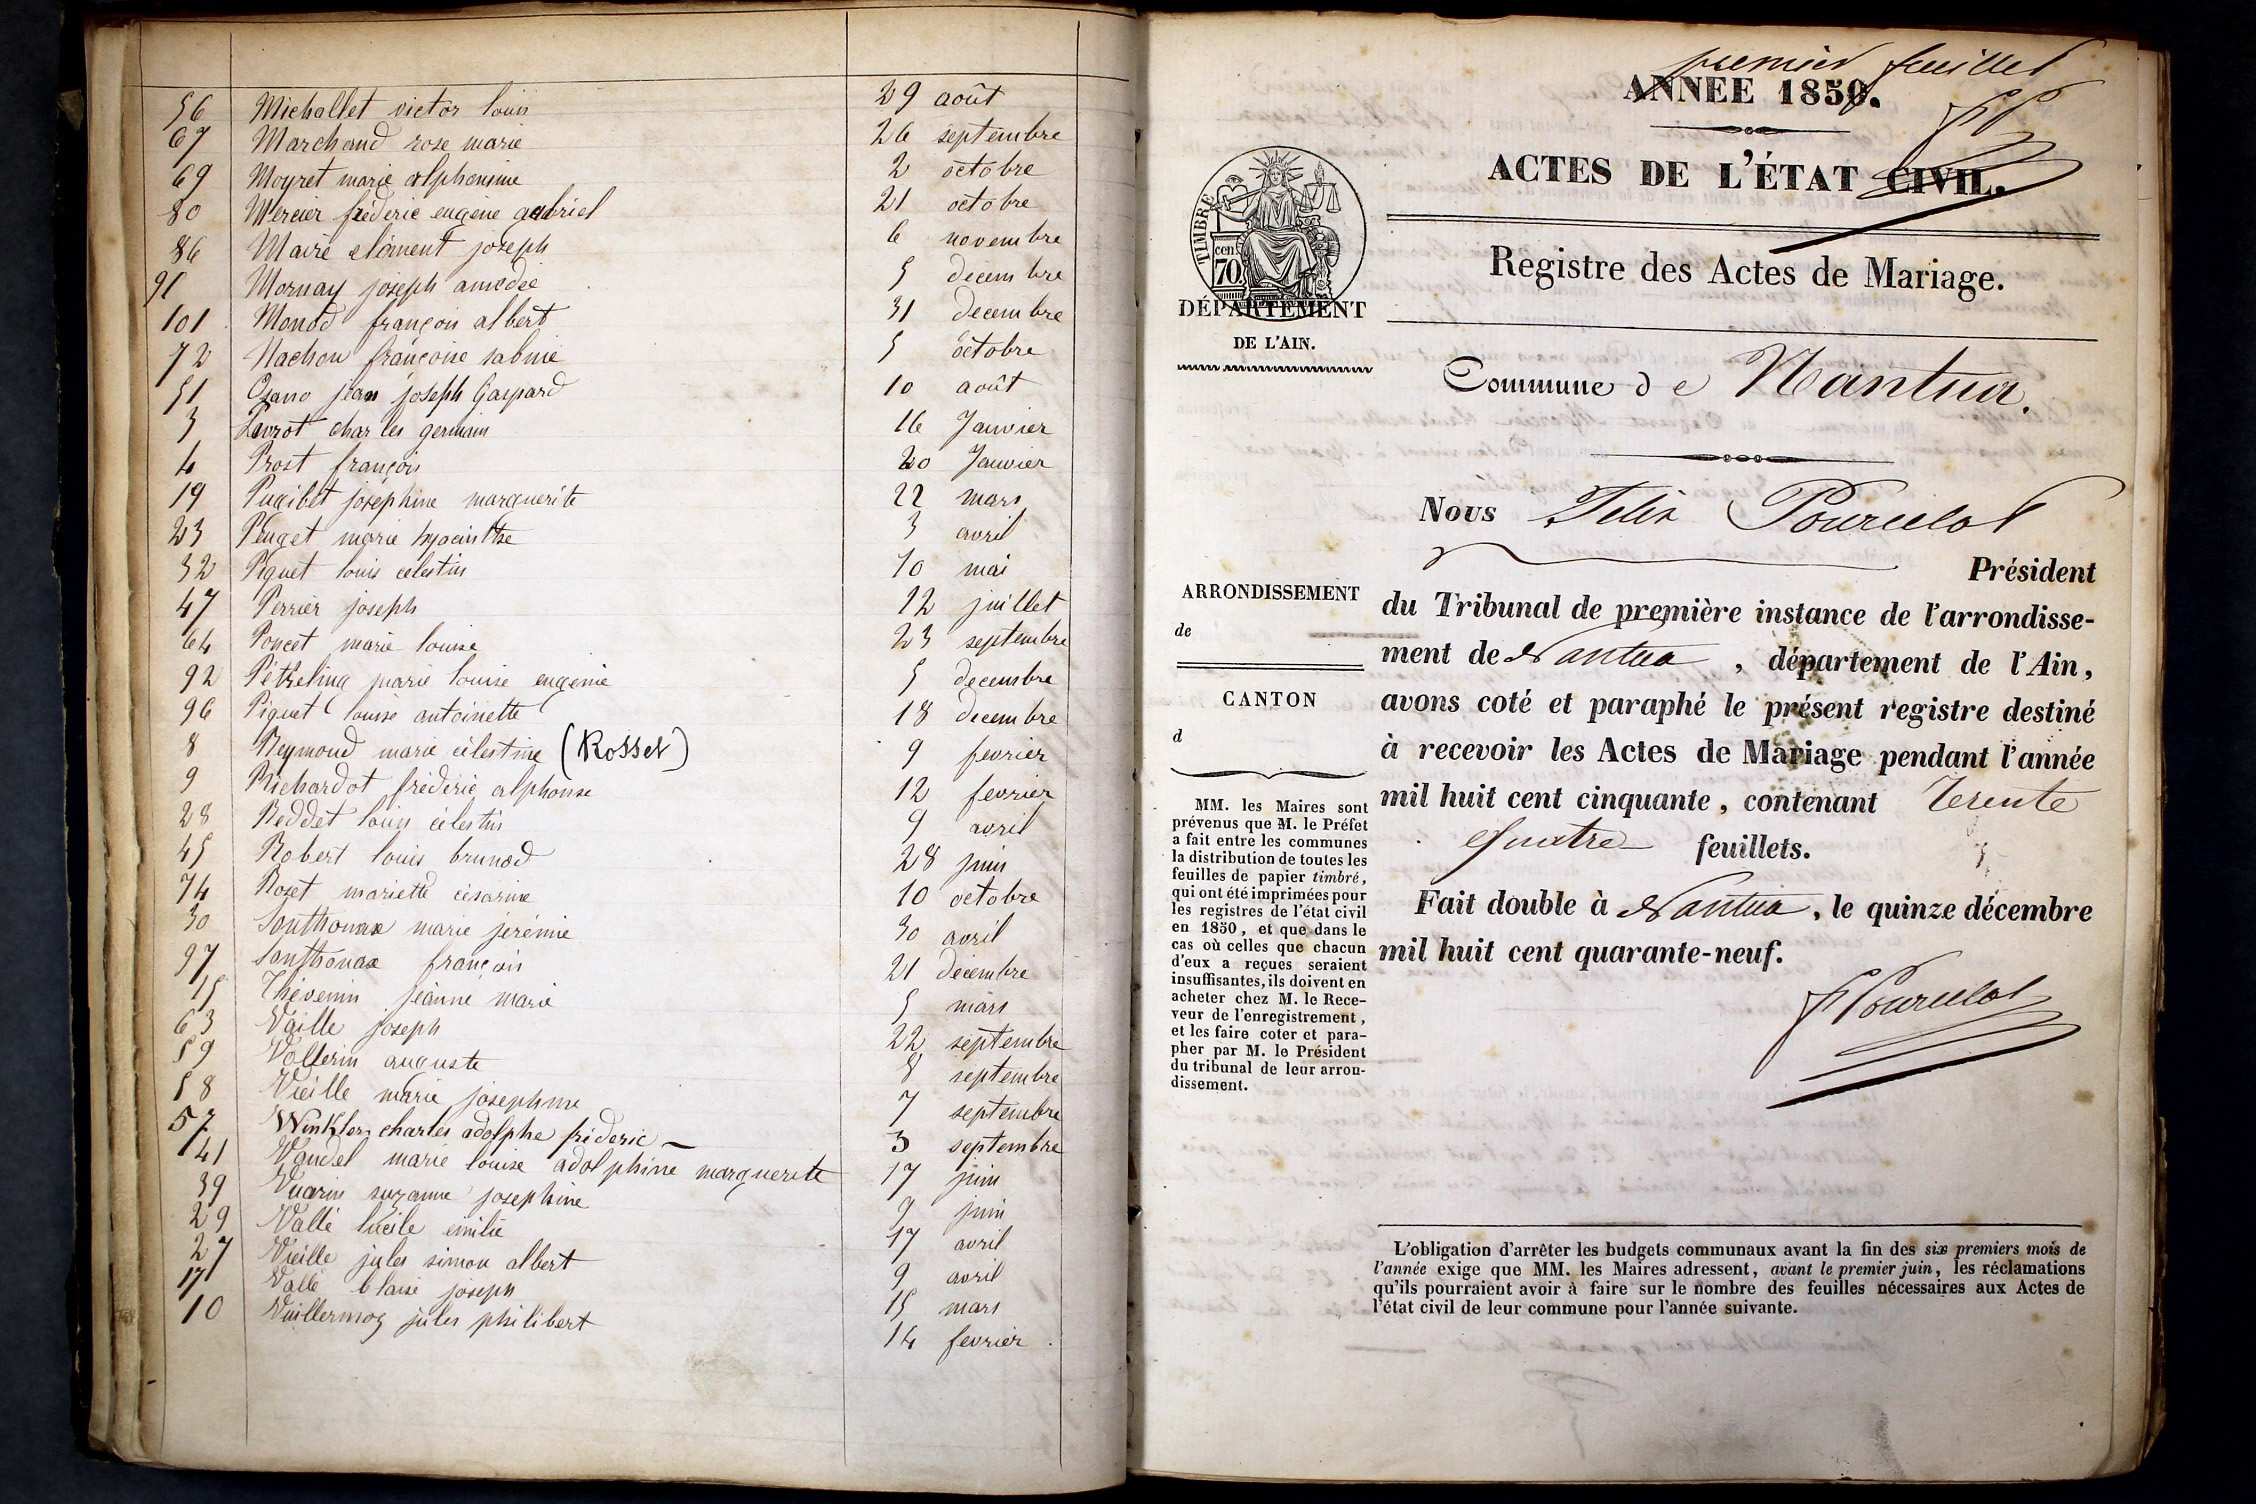 56 Michallet victor louis 29 août
67 Marchand rose marie 26 septembre
69 Moyret marie alphonsine 2 octobre
80 Mercier fréderic eugène gabriel 21 octobre
86 Maire clément joseph 6 novembre
91 Mornay joseph amedée 5 décembre
101 Monod françois albert 31 décembre
72 Nachon françoise sabine 5 octobre
51 Ozano jean joseph Gaspard 10 août
3 charles germain 16 Janvier
4 Prost françois 20 Janvier
19 Pugibet joséphine marguerite 22 mars
23 Peuget marie hyacinthe 3 avril
32 Piquet louis célestin 10 mai
47 Perrier joseph 12 juillet
64 Poncet marie louise 23 septembre
92 marie louise eugénie 5 decembre
96 Piquet louise antoinette 18 decembre
8 Reymond marie célestine (Rosset) 9 fevrier
9 Richardot fréderic alphonse 12 fevrier
28 Reddet louis célestin 9 avril
45 Robert louis brunod 28 juin
74 Rozet mariette césarine 10 octobre
30 Santhonax marie jérémie 30 avril
97 Santhonax françois 21 décembre
15 Thévenin jeanne marie 5 mars
63 Vaille joseph 22 septembre
59 Vollerin auguste 8 septembre
58 Vieille marie josephine 7 septembre
57 Winkler charles adolphe fréderic 3 septembre
41 Vandel marie louise adolphine marguerite 17 juin
39 Vuarin suzanne josephine 9 juin
29 Vallé lucile emilie 17 avril
27 Vieille jules simon albert 9 avril
17 Vallé blaise joseph 15 mars
10 Vuillermoz jules philibert 14 fevrier
premier feuillet
ANNÉE 1850.
ACTES DE L'ÉTAT CIVIL.
Registre des Actes de Mariage.
TIMBRE
70 cen
DÉPARTEMENT
DE L'AIN.
Commune de Nantua.
Nous Félix Pourcelot
Président
du Tribunal de première instance de l'arrondisse-
ment de Nantua, département de l'Ain,
avons coté et paraphé le présent registre destiné
à recevoir les Actes de Mariage pendant l'année
mil huit cent cinquante, contenant Trente
quatre feuillets.
Fait double à Nantua, le quinze décembre
mil huit cent quarante-neuf.
F Pourcelot
ARRONDISSEMENT
de
CANTON
d
MM. les Maires sont
prévenus que M. le Préfet
a fait entre les communes
la distribution de toutes les
feuilles de papier timbré,
qui ont été imprimées pour
les registres de l'état civil
en 1850, et que dans le
cas où celles que chacun
d'eux a reçues seraient
insuffisantes, ils doivent en
acheter chez M. le Rece-
veur de l'enregistrement,
et les faire coter et para-
pher par M. le Président
du tribunal de leur arron-
dissement.
L'obligation d'arrêter les budgets communaux avant la fin des six premiers mois de
l'année exige que MM. les Maires adressent, avant le premier juin, les réclamations
qu'ils pourraient avoir à faire sur le nombre des feuilles nécessaires aux Actes de
l'état civil de leur commune pour l'année suivante.